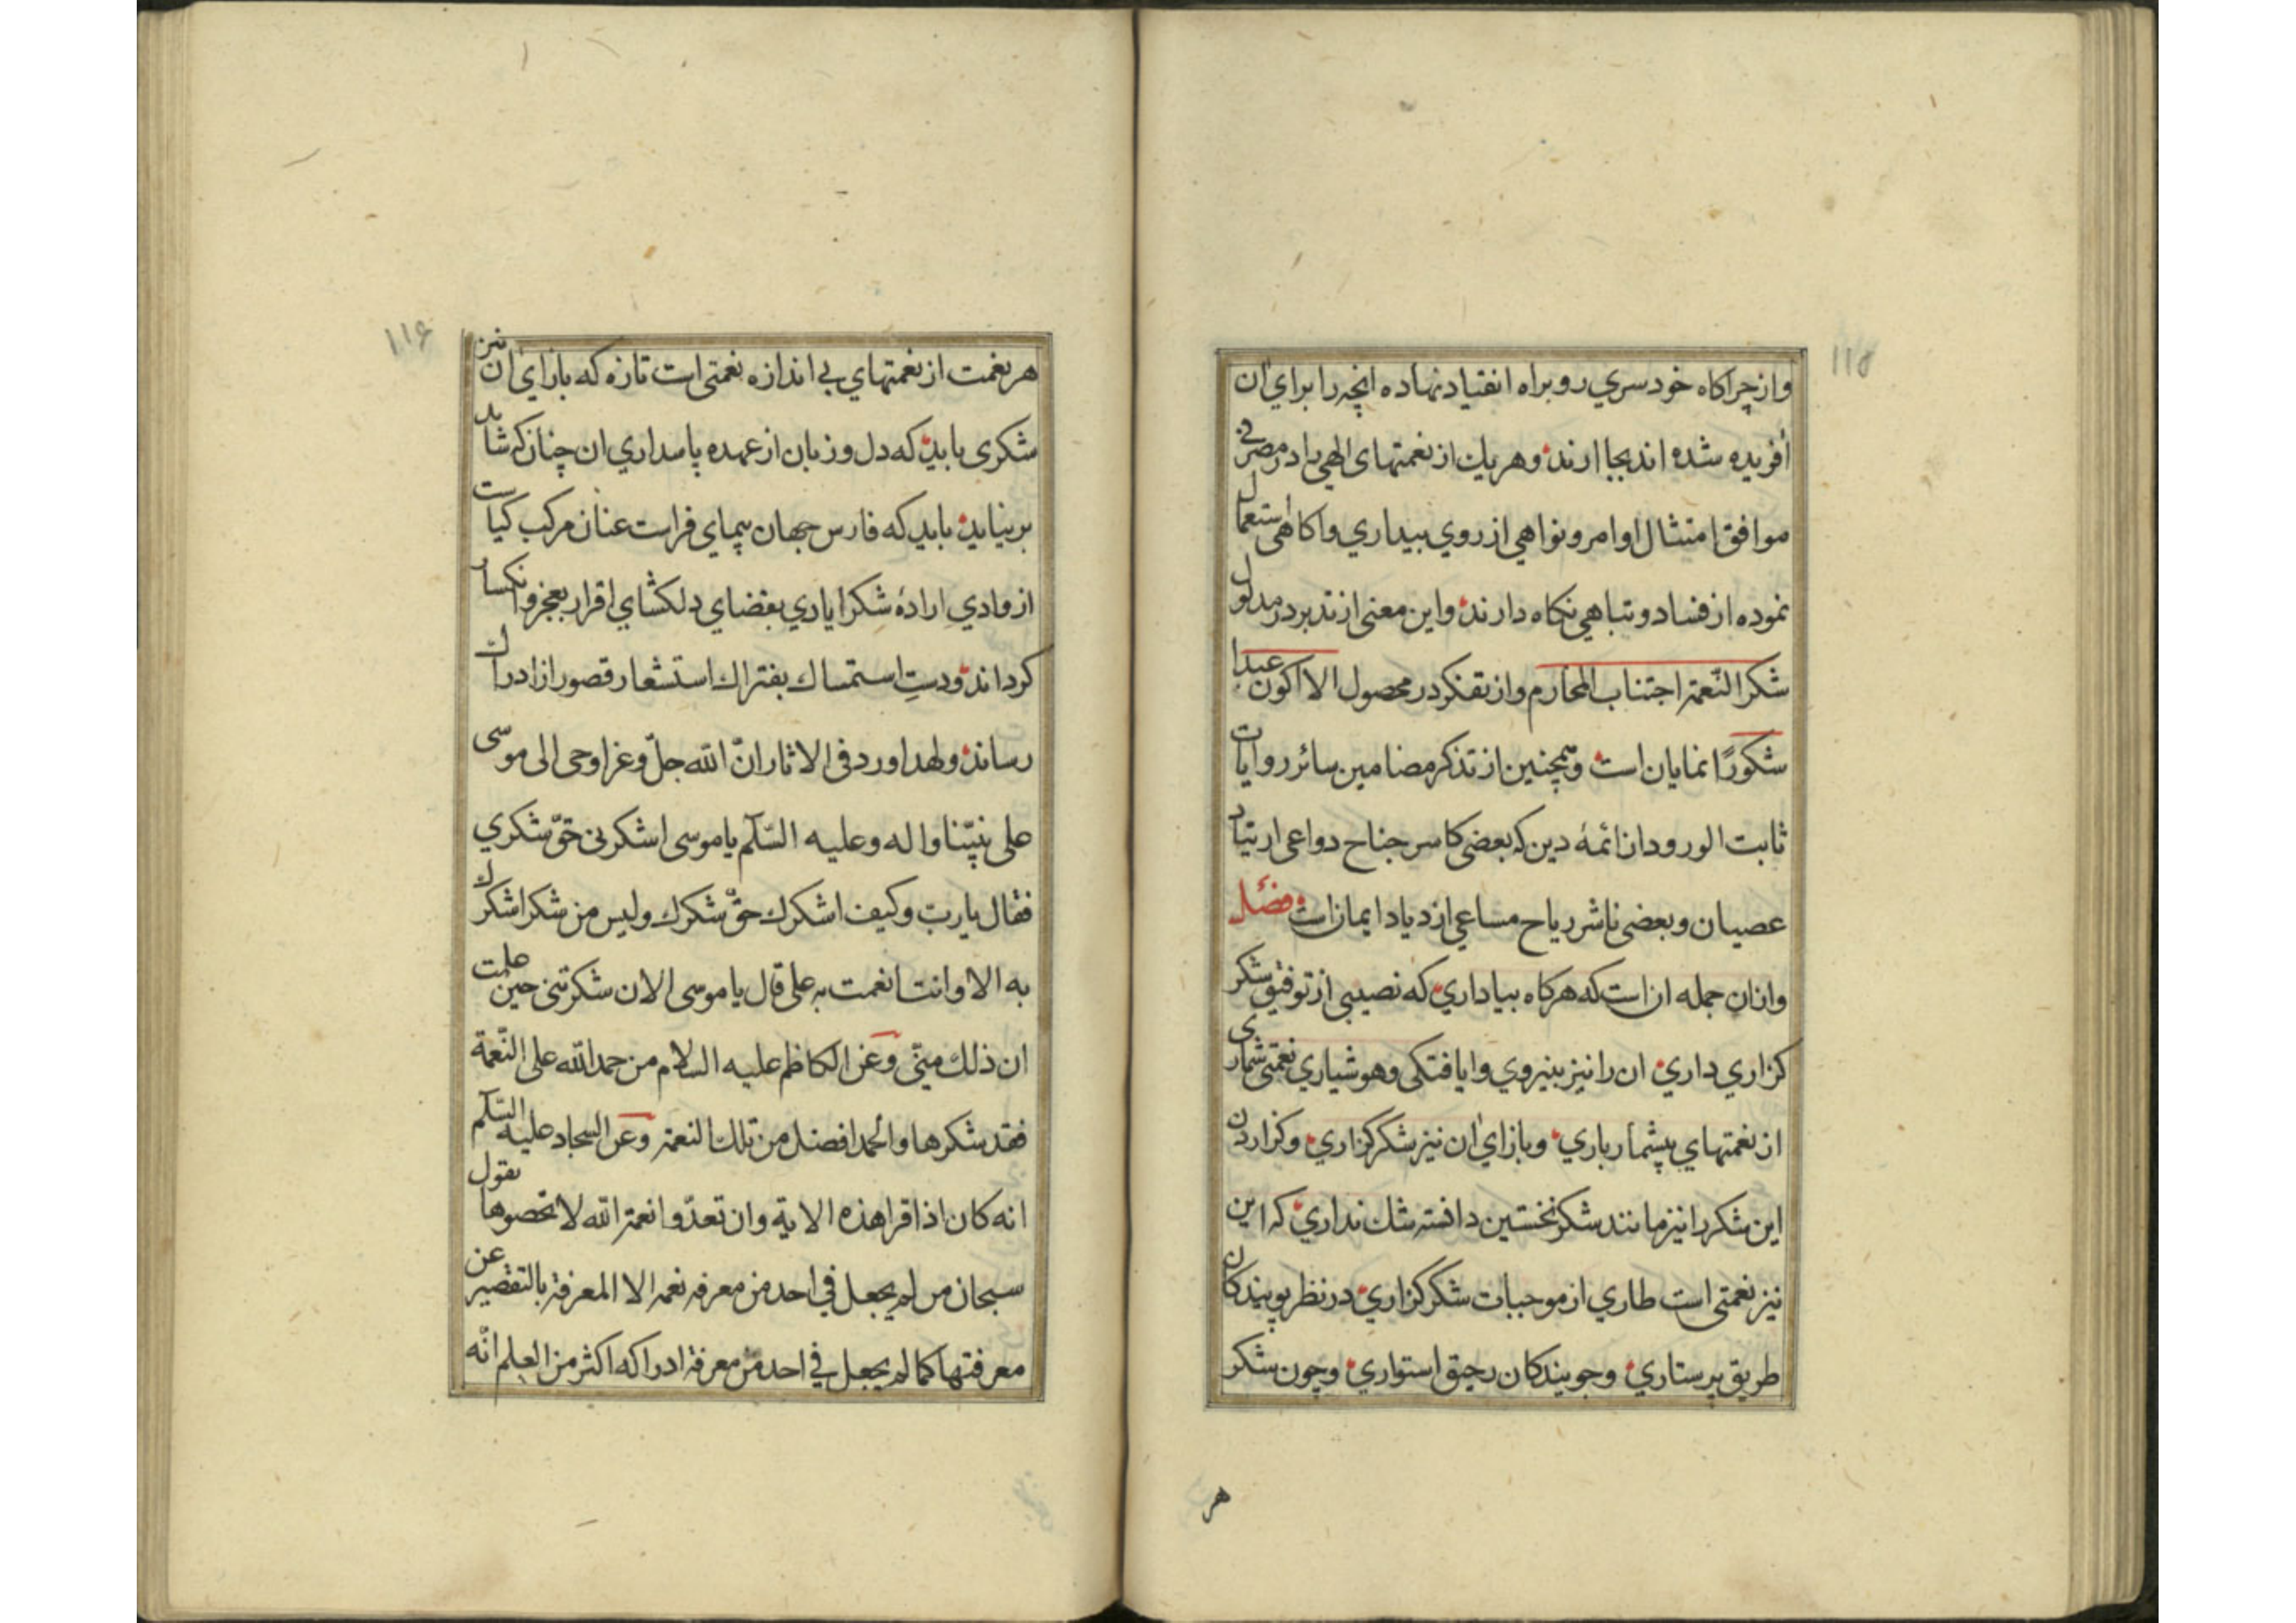 ۱۱۵
واز چراکاه خودسري رو براه انقیاد نهاده انچه را براي ان
أفریده شده اند بجا ارند وهریك از نعمتهای الهي را در مصرفی
موافق امتثال اوامر ونواهي از روي بیداري واکاهي استعمال
نموده از فساد وتباهي نکاه دارند واین معنی از تدبر در مدلول
شکر النّعمة اجتناب المحارم واز تفکر در محصول الا اکون عبدا
شکورًا نمایان است وهمچنین از تذکر مضامین سائر روایات
ثابت الورود از ائمهٔ دین که بعضی کاسر جناح دواعی ارتیاد
عصیان وبعضی ناشر ریاح مساعي ازدیاد ایمان است فصل
وازان جمله ان است که هرکاه بیاداري که نصیبی از توفیق شکر
کزاري داري ان را نیز بنیروي وایافتکی وهوشیاري نعمتی شماری
از نعمتهاي بیشمار باري وبازاي ان نیز شکر کزاري وکزاردن
این شکر را نیز مانند شکر نخستین دانسته شك نداري که این
نیز نعمتی است طاري از موجبات شکر کزاري در نظر پویندکان
طریق پرستاري وجویندکان رحیق استواري وچون شکر
هر
۱۱۶
هر نعمت از نعمتهاي بي اندازه نعمتی است تازه که بازاي ان نیز
شکری باید که دل وزبان از عهده پاسداري ان چنان که شاید
برنیاید باید که فارس جهان پیمای فراست عنان مرکب کیاست
از وادي ارادهٔ شکر ایادي بفضاي دلکشاي اقرار بعجز وانکسار
کرداند ودستِ استمساك بفتراك استشعار قصور از ادراك
رساند ولهذا ورد فی الاثار انّ الله جلّ وعز اوحی الی موسی
علی نبیّنا واله وعلیه السّلام یا موسی اشکرنی حقّ شکري
فقال یا ربّ وکیف اشکرك حقّ شکرك ولیس من شکر اشکرك
به الا وانت انعمت به علی قال یا موسی الان شکرتنی حین علمت
ان ذلك منّی وعن الکاظم علیه السلام من حمد الله علی النّعمة
فقد شکرها والحمد افضل من تلك النعمة وعن السجاد علیه السّلام
انه کان اذا قرا هذه الایة وان تعدّوا نعمة الله لا تحصوها یقول
سبحان من لم یجعل في احد من معرفه نعمه الا المعرفة بالتقصیر عن
معرفتها کما لم یجعل في احد من معرفة ادراکه اکثر من العلم انّه